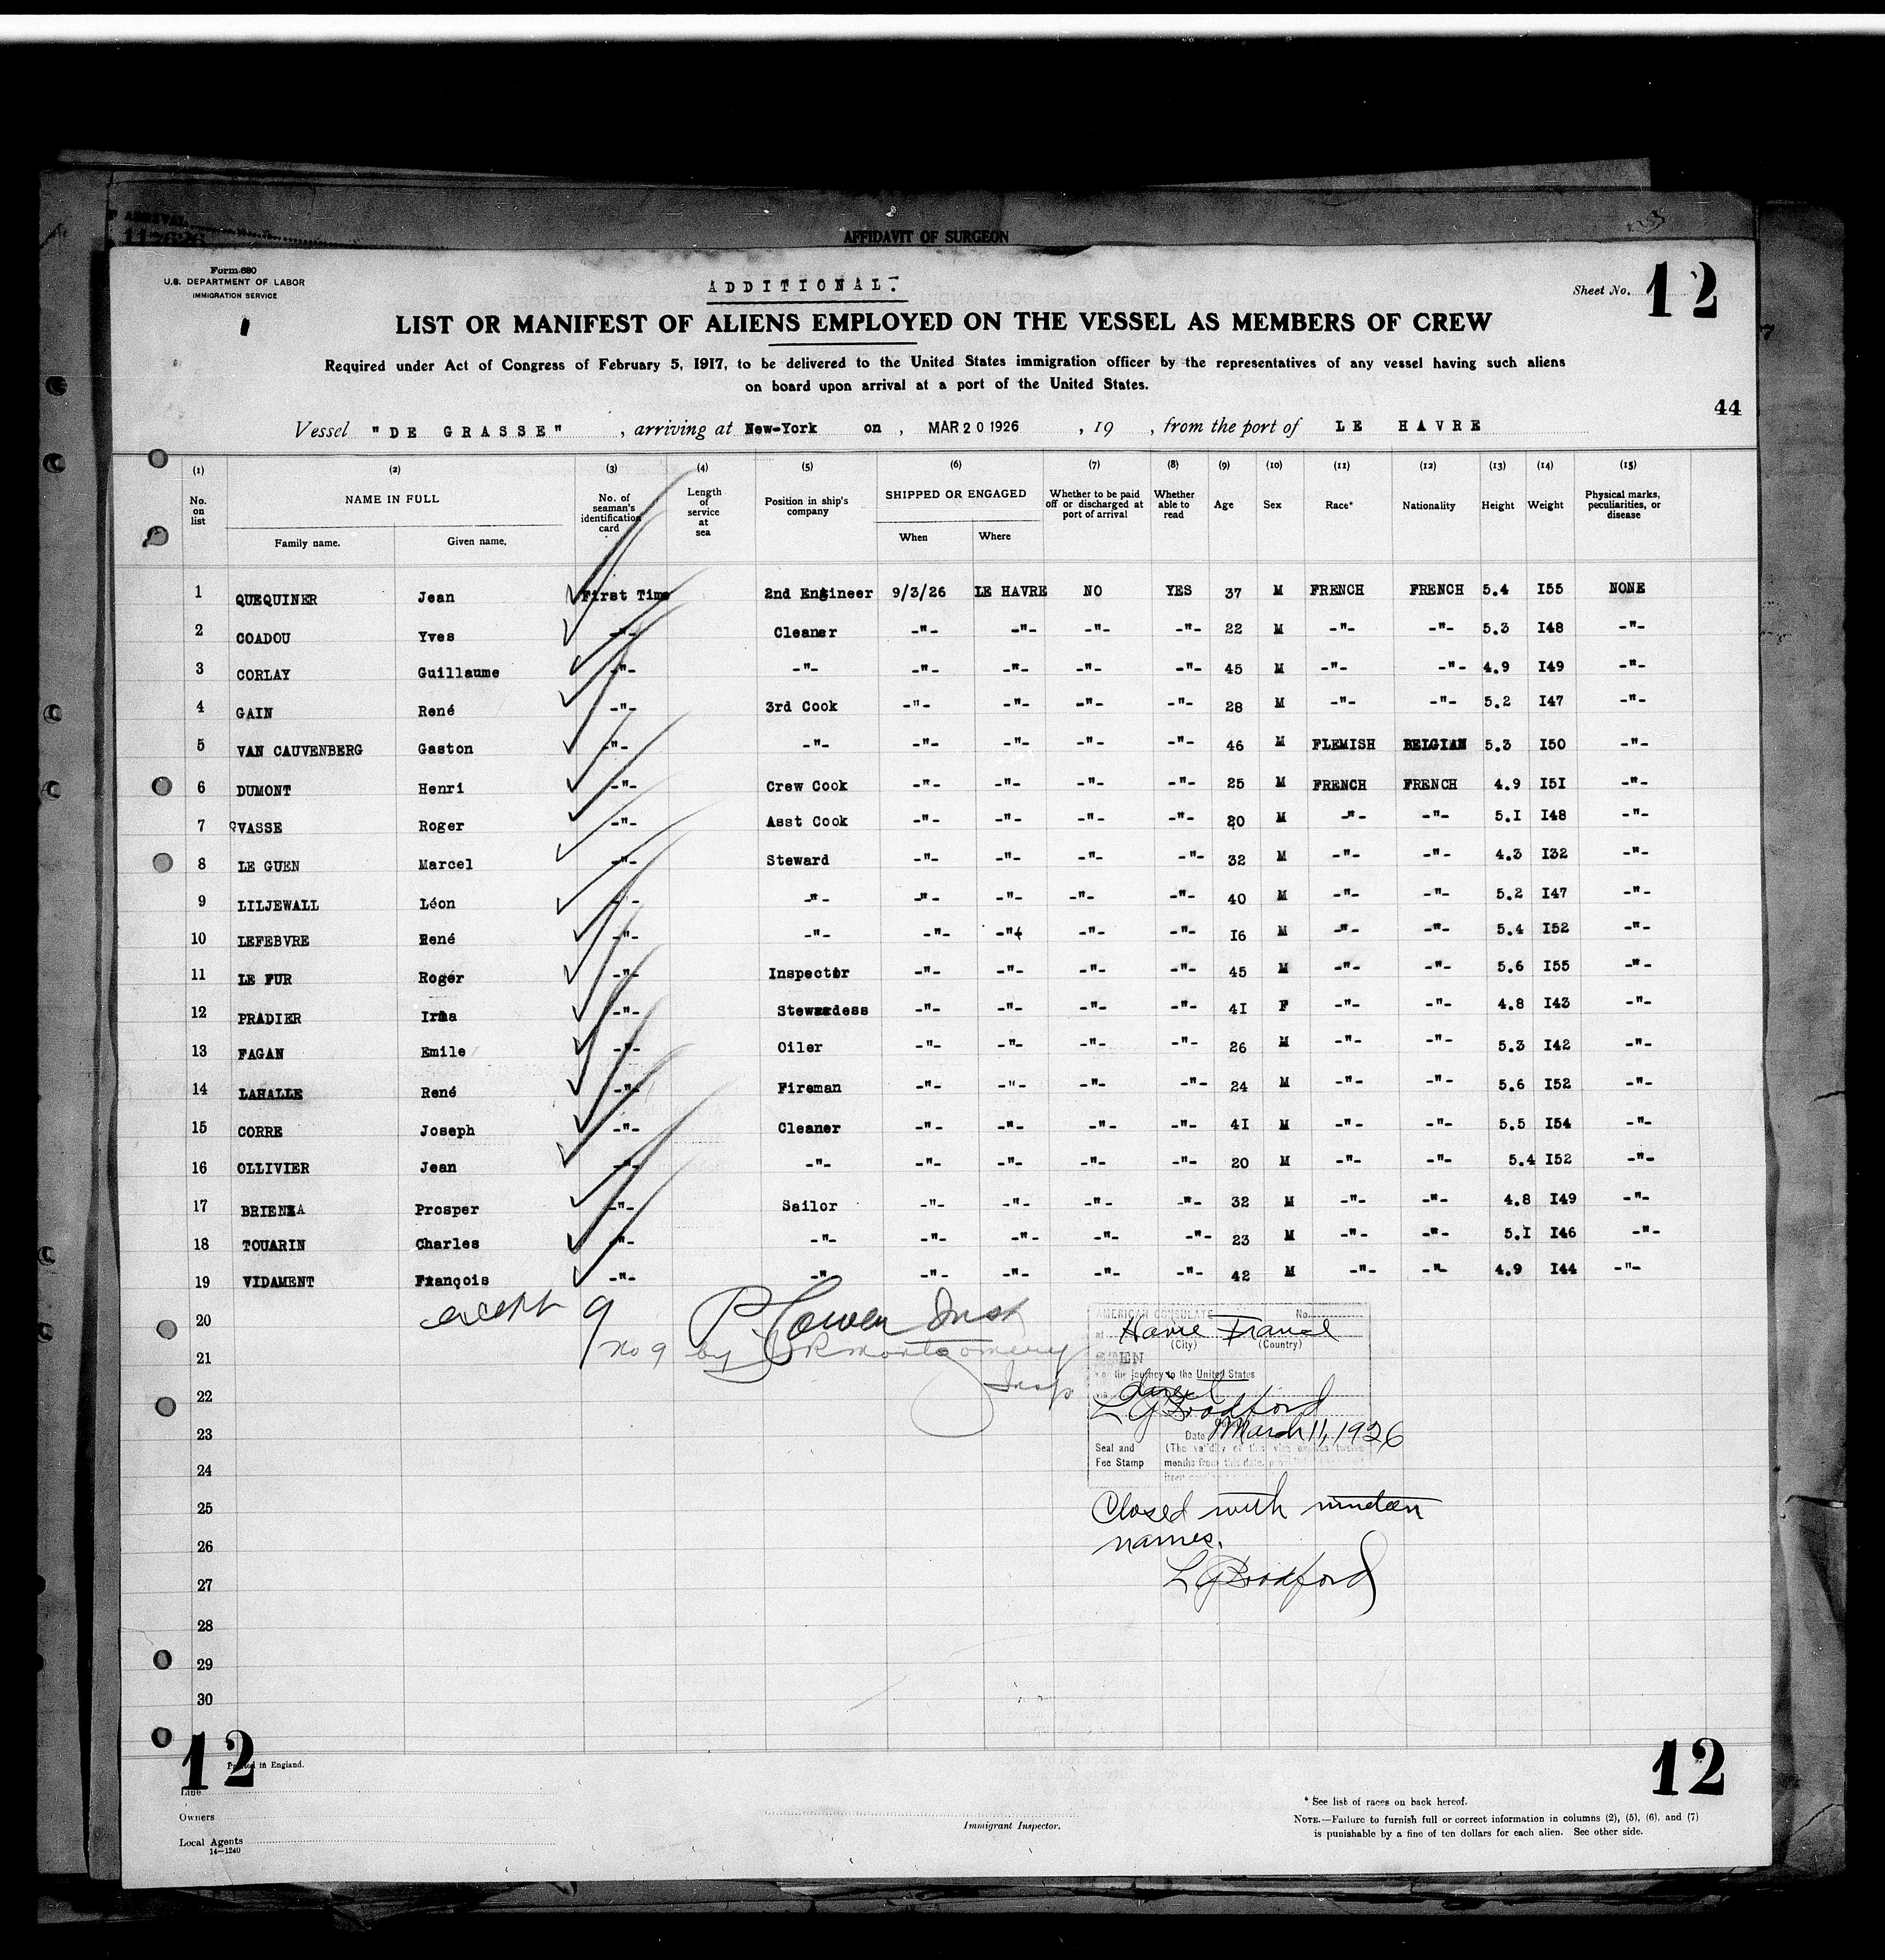 ARRIVAL
AFFIDAVIT OF SURGEON
Form 680
U.S. DEPARTMENT OF LABOR
IMMIGRATION SERVICE
ADDITIONAL.
Sheet No. 12
LIST OR MANIFEST OF ALIENS EMPLOYED ON THE VESSEL AS MEMBERS OF CREW
Required under Act of Congress of February 5, 1917, to be delivered to the United States immigration officer by the representatives of any vessel having such aliens
on board upon arrival at a port of the United States.
44
Vessel "DE GRASSE", arriving at New-York on, MAR 20 1926, 19 , from the port of LE HAVRE
(1) (2) (3) (4) (5) (6) (7) (8) (9) (10) (11) (12) (13) (14) (15)
No. on list NAME IN FULL No. of seaman's identification card Length of service at sea Position in ship's company SHIPPED OR ENGAGED Whether to be paid off or discharged at port of arrival Whether able to read Age Sex Race* Nationality Height Weight Physical marks, peculiarities, or disease
Family name. Given name. When Where
1 QUEQUINER Jean First Time 2nd Engineer 9/3/26 LE HAVRE NO YES 37 M FRENCH FRENCH 5.4 I55 NONE
2 COADOU Yves -"- Cleaner -"- -"- -"- -"- 22 M -"- -"- 5.3 I48 -"-
3 CORLAY Guillaume -"- -"- -"- -"- -"- -"- 45 M -"- -"- 4.9 I49 -"-
4 GAIN René -"- 3rd Cook -"- -"- -"- -"- 28 M -"- -"- 5.2 I47 -"-
5 VAN CAUVENBERG Gaston -"- -"- -"- -"- -"- -"- 46 M FLEMISH BELGIAN 5.3 I50 -"-
6 DUMONT Henri -"- Crew Cook -"- -"- -"- -"- 25 M FRENCH FRENCH 4.9 I5I -"-
7 VASSE Roger -"- Asst Cook -"- -"- -"- -"- 20 M -"- -"- 5.I I48 -"-
8 LE GUEN Marcel -"- Steward -"- -"- -"- -"- 32 M -"- -"- 4.3 I32 -"-
9 LILJEWALL Léon -"- -"- -"- -"- -"- -"- 40 M -"- -"- 5.2 I47 -"-
10 LEFEBVRE René -"- -"- -"- -"- -"- -"- I6 M -"- -"- 5.4 I52 -"-
11 LE FUR Roger -"- Inspector -"- -"- -"- -"- 45 M -"- -"- 5.6 I55 -"-
12 PRADIER Irma -"- Stewardess -"- -"- -"- -"- 4I F -"- -"- 4.8 I43 -"-
13 FAGAN Emile -"- Oiler -"- -"- -"- -"- 26 M -"- -"- 5.3 I42 -"-
14 LAHALLE René -"- Fireman -"- -"- -"- -"- 24 M -"- -"- 5.6 I52 -"-
15 CORRE Joseph -"- Cleaner -"- -"- -"- -"- 4I M -"- -"- 5.5 I54 -"-
16 OLLIVIER Jean -"- -"- -"- -"- -"- -"- 20 M -"- -"- 5.4 I52 -"-
17 BRIENZA Prosper -"- Sailor -"- -"- -"- -"- 32 M -"- -"- 4.8 I49 -"-
18 TOUARIN Charles -"- -"- -"- -"- -"- -"- 23 M -"- -"- 5.I I46 -"-
19 VIDAMENT François -"- -"- -"- -"- -"- -"- 42 M -"- -"- 4.9 I44 -"-
except 9
20
No 9 by Montgomery
Insp
AMERICAN CONSULATE No.
at Havre France
(City) (Country)
21
SEEN
For the journey to the United States
22
via direct
L G Bradford
23
Date March 11, 1926
Seal and Fee Stamp
(The validity of this visa expires twelve
24
months from this date,
25
Closed with nineteen
26
names.
27
L G Bradford
28
29
30
12 12
Printed in England.
Line
Owners
Local Agents
14—1240
Immigrant Inspector.
* See list of races on back hereof.
NOTE.—Failure to furnish full or correct information in columns (2), (5), (6), and (7)
is punishable by a fine of ten dollars for each alien. See other side.